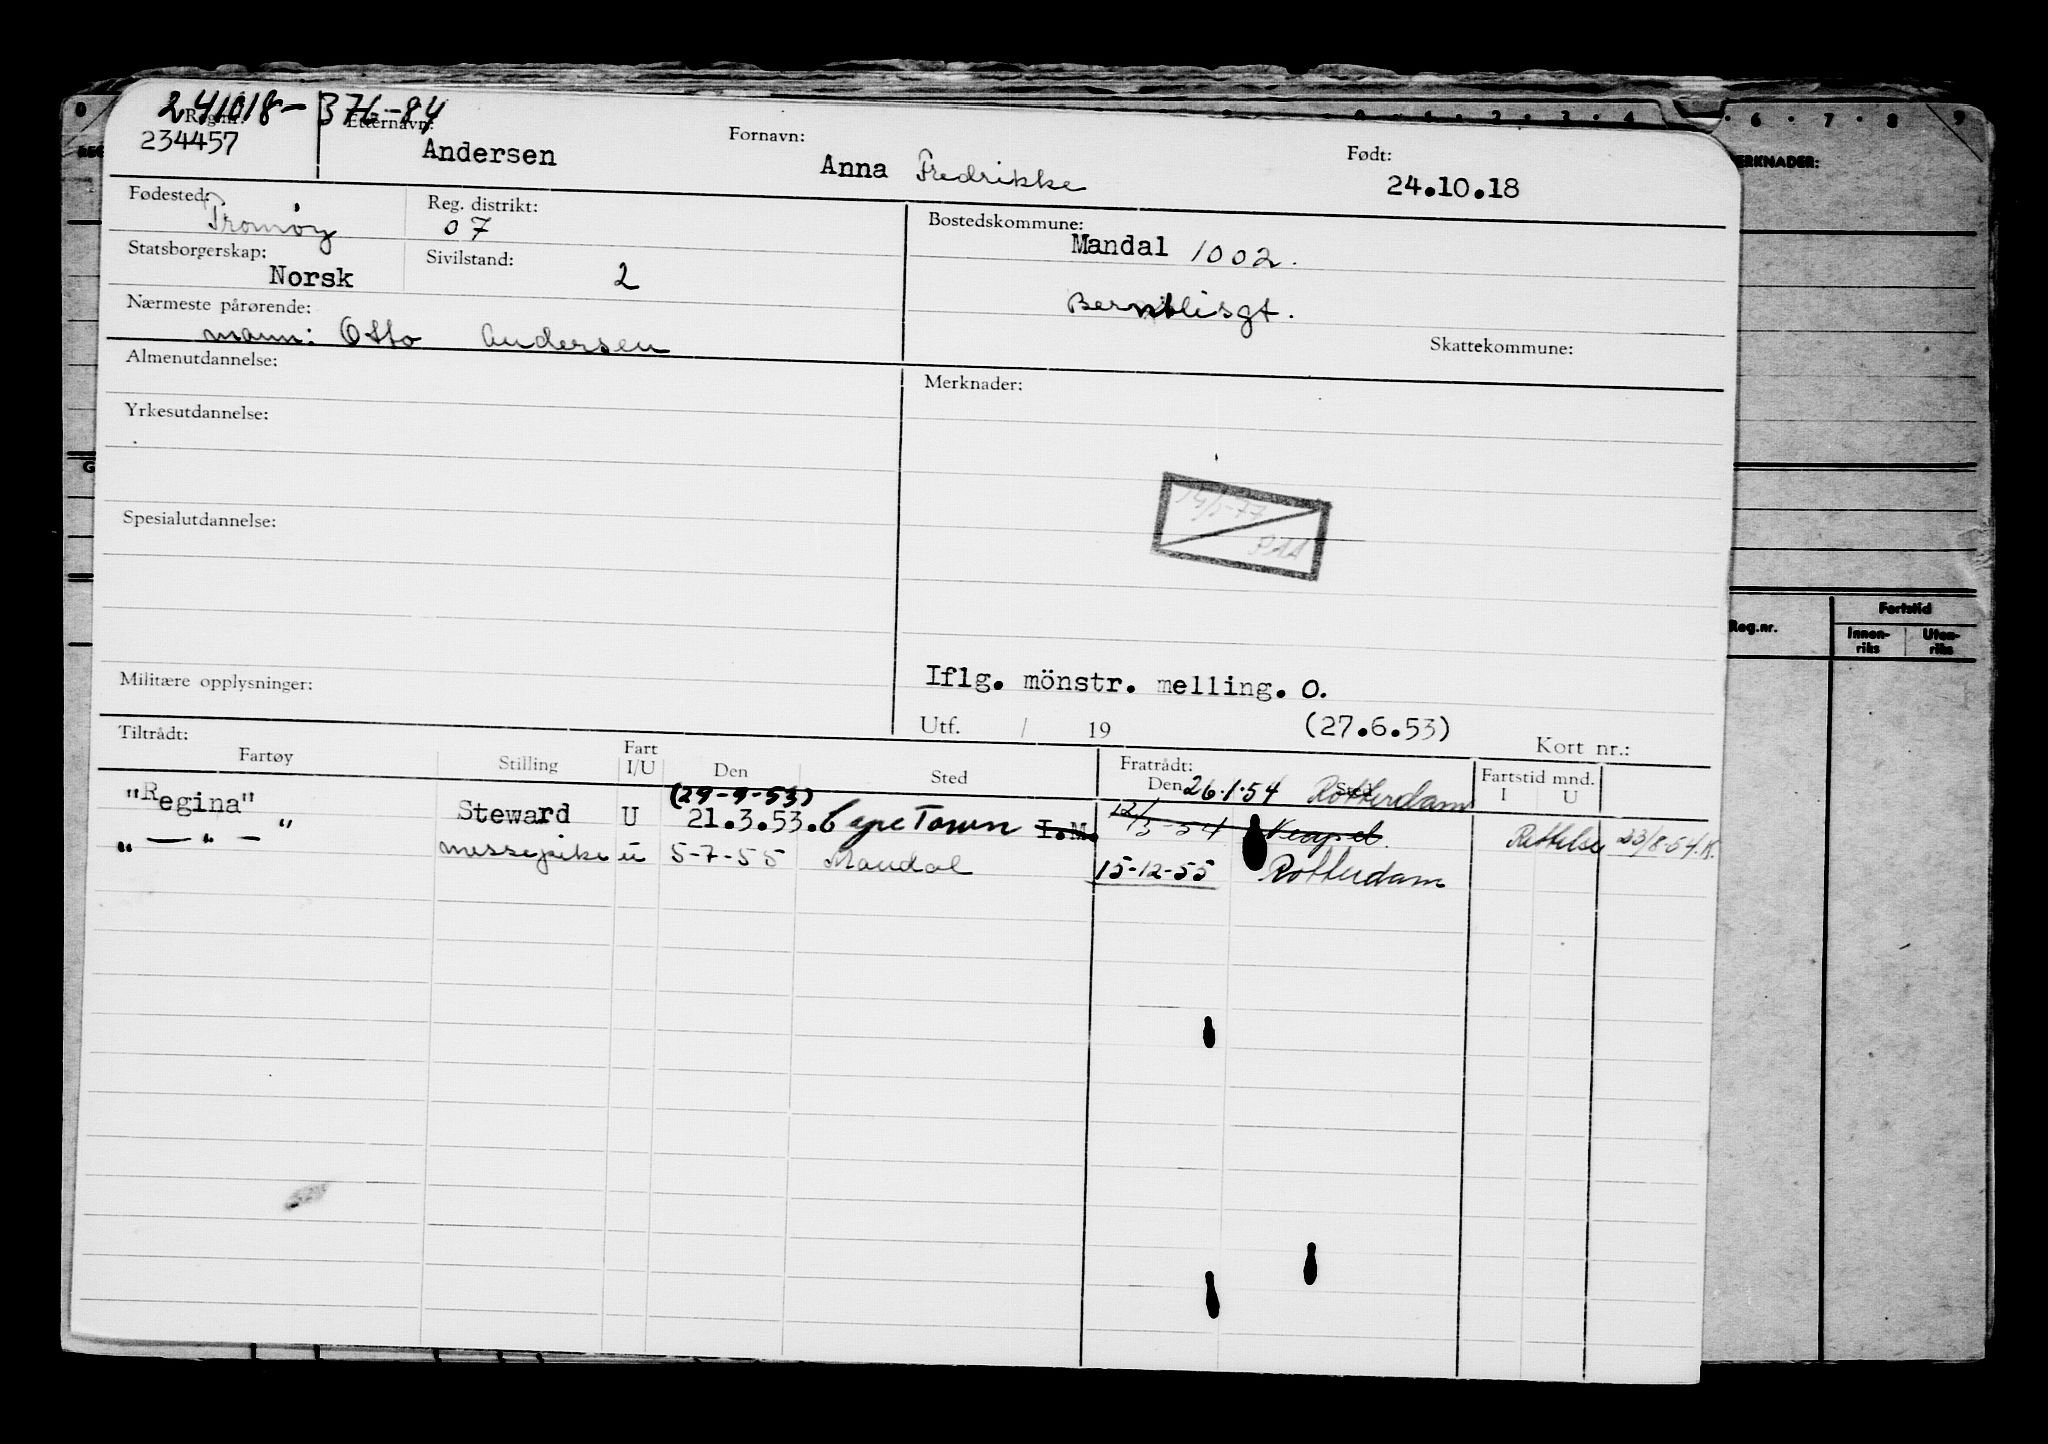 241018-376-84
Reg.nr. Etternavn: Fornavn: Født:
234457 Andersen Anna Fredrikke 24.10.18
Fødested: Reg. distrikt: Bostedskommune:
Tromøy 07 Mandal 1002.
Statsborgerskap: Sivilstand:
Norsk 2
Nærmeste pårørende: Skattekommune:
mann: Otto Andersen
Almenutdannelse: Merknader:
Yrkesutdannelse:
14/5-77
Spesialutdannelse:
Iflg. mönstr. melling. O.
Militære opplysninger:
Utf. / 19 (27.6.53) Kort nr.:
Tiltrådt: Fratrådt:
Fartøy Stilling Fart I/U Den Sted Den 26.1.54 Sted Rotterdam Fartstid mnd. I U
(29-9-53)
"Regina" Steward U 21.3.53. Cape Town I.M. 12/3-54 Neapel. Rettelse 23/8-54.K.
" — " — " messepike u 5-7-55 Mandal 15-12-55 Rotterdam
MERKNADER:
Reg.nr. Fartstid
Innen-riks Uten-riks
6 . 7 . 8 . 9